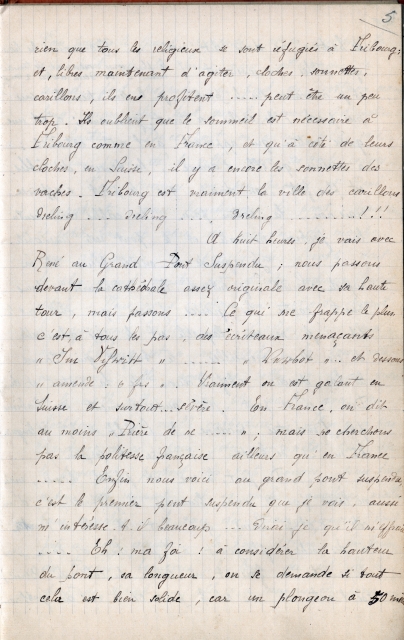 5
rien que tous les religieux se sont réfugiés à Fribourg,
et, libres maintenant d'agiter, cloches, sonnettes,
carillons, ils en profitent ..... peut être un peu
trop. Ils oublient que le sommeil est nécessaire à
Fribourg comme en France, et qu'à côté de leurs
cloches, en Suisse, il y a encore les sonnettes des
vaches. Fribourg est vraiment la ville des carillons
dreling .... dreling ..... dreling ......... !!!
A huit heures, je vais avec
René au Grand Pont Suspendu ; nous passons
devant la cathédrale assez originale avec sa haute
tour, mais passons .... Ce qui me frappe le plus
c'est, à tous les pas, des écriteaux menaçants
" ..... " ... et dessous
" amende : 6 frs ". Vraiment on est galant en
Suisse et surtout... sévère. En France, on dit
au moins " Prière de ne ..... " ; mais ne cherchons
pas la politesse française ailleurs qu'en France
..... Enfin nous voici au grand pont suspendu,
c'est le premier pont suspendu que je vois, aussi
m'intéresse-t-il beaucoup ...
..... Eh ! ma foi ! à considérer la hauteur
du pont, sa longueur, on se demande si tout
cela est bien solide, car un plongeon à 50